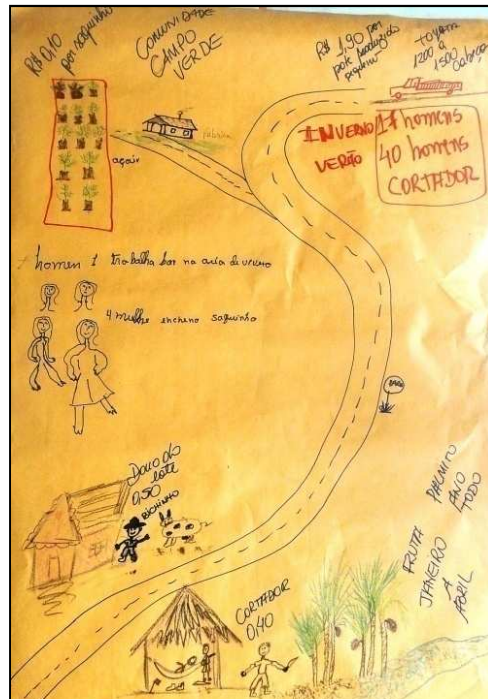 R$ 0,10
por saquinho
COMUNIDADE
CAMPO
VERDE
R$ 1,90 por
pote produzido
toyota
1200 a
1500
cabeça
açai
INVERNO 17 homens
VERÃO 40 homens
CORTADOR
homen 1 trabalha
4 mulhe encheno saquinho
Dono do
lote
0,50
BICHINHO
CORTADOR
0,40
FRUTA
JANEIRO
A
ABRIL
PALMITO
ANO
TODO